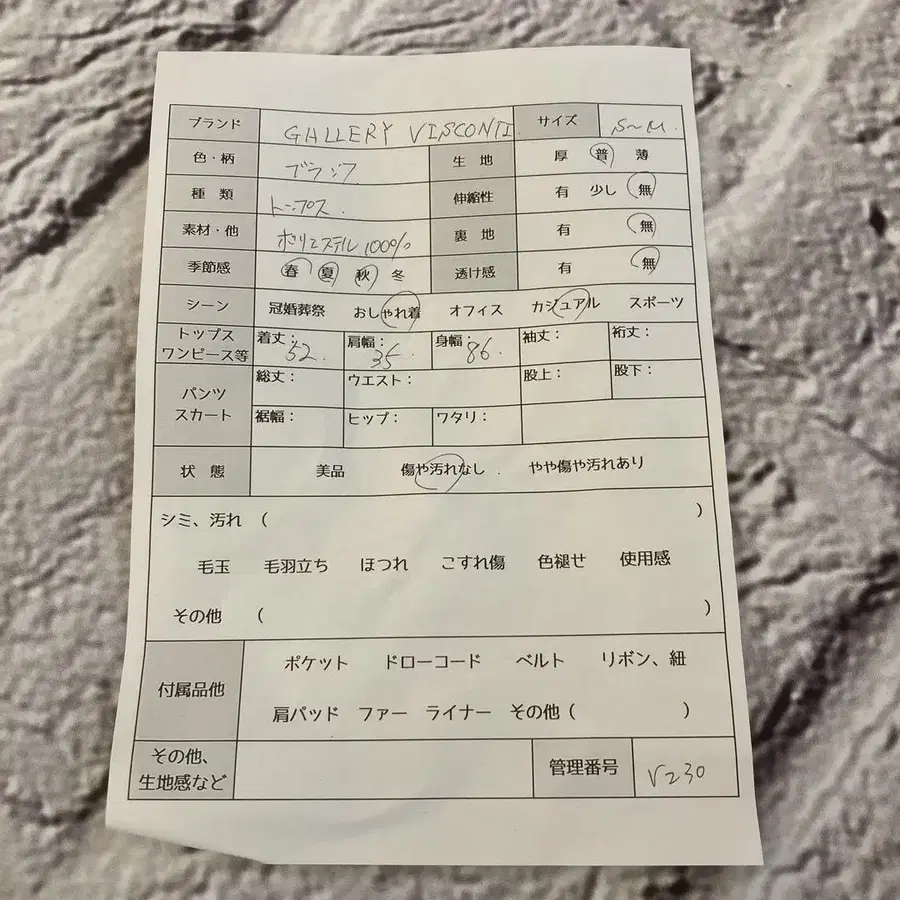 ブランド GALLERY VISCONTI サイズ S~M.
色・柄 ブラック 生地 厚 普 薄
種類 トップス. 伸縮性 有 少し 無
素材・他 ポリエステル100% 裏地 有 無
季節感 春 夏 秋 冬 透け感 有 無
シーン 冠婚葬祭 おしゃれ着 オフィス カジュアル スポーツ
トップス ワンピース等 着丈: 52. 肩幅: 35. 身幅: 86. 袖丈: 裄丈:
パンツ スカート 総丈: ウエスト: 股上: 股下:
裾幅: ヒップ: ワタリ:
状態 美品 傷や汚れなし . やや傷や汚れあり
シミ、汚れ ( )
毛玉 毛羽立ち ほつれ こすれ傷 色褪せ 使用感
その他 ( )
付属品他 ポケット ドローコード ベルト リボン、紐
肩パッド ファー ライナー その他 ( )
その他、生地感など 管理番号 V230